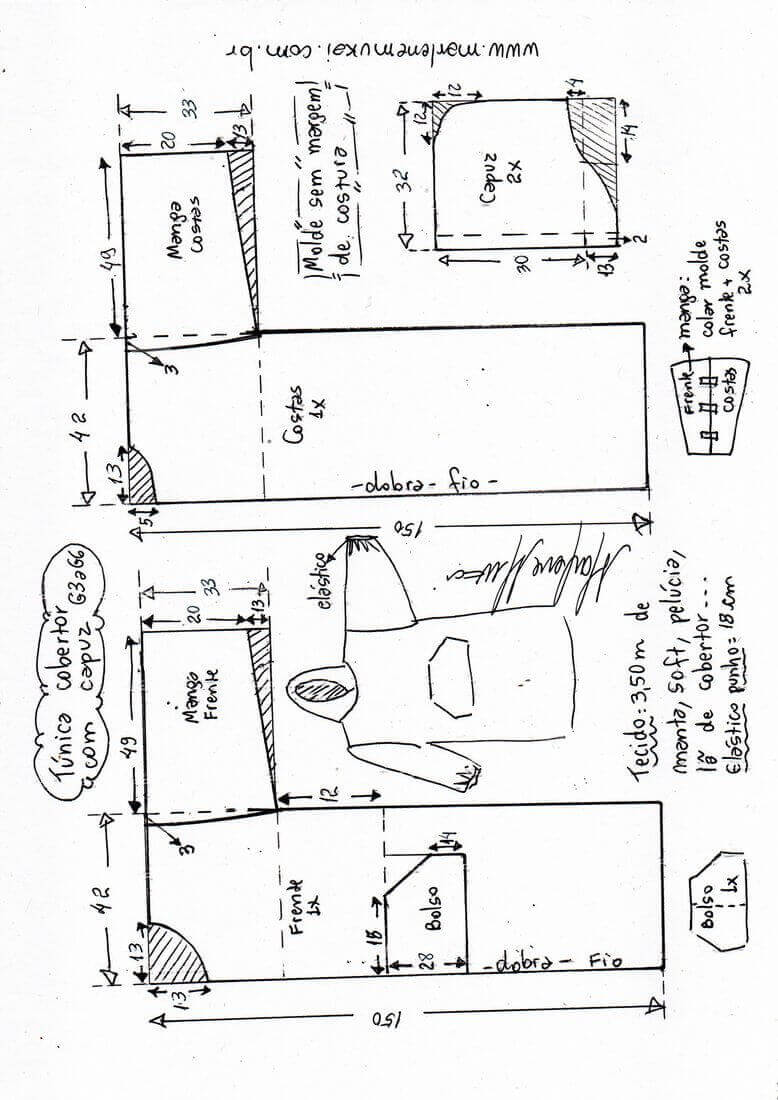 Túnica cobertor
com capuz G3aG6
42
49
13
13
3
20
33
13
Manga
Frente
Frente
1x
12
14
28
Bolso
-dobra- Fio
150
Bolso
1x
elástico
Marlene Mukai
Tecido=3,50m de
manta, soft, pelúcia,
lã de cobertor...
Elástico punho=18cm
42
49
13
5
3
20
33
13
Manga
Costas
Costas
1x
-dobra-fio-
150
Molde sem margem
de costura
www.marlenemukai.com.br
32
12
12
4
14
Capuz
2x
30
13
2
Frente
costas
manga:
colar molde
frente+costas
2x